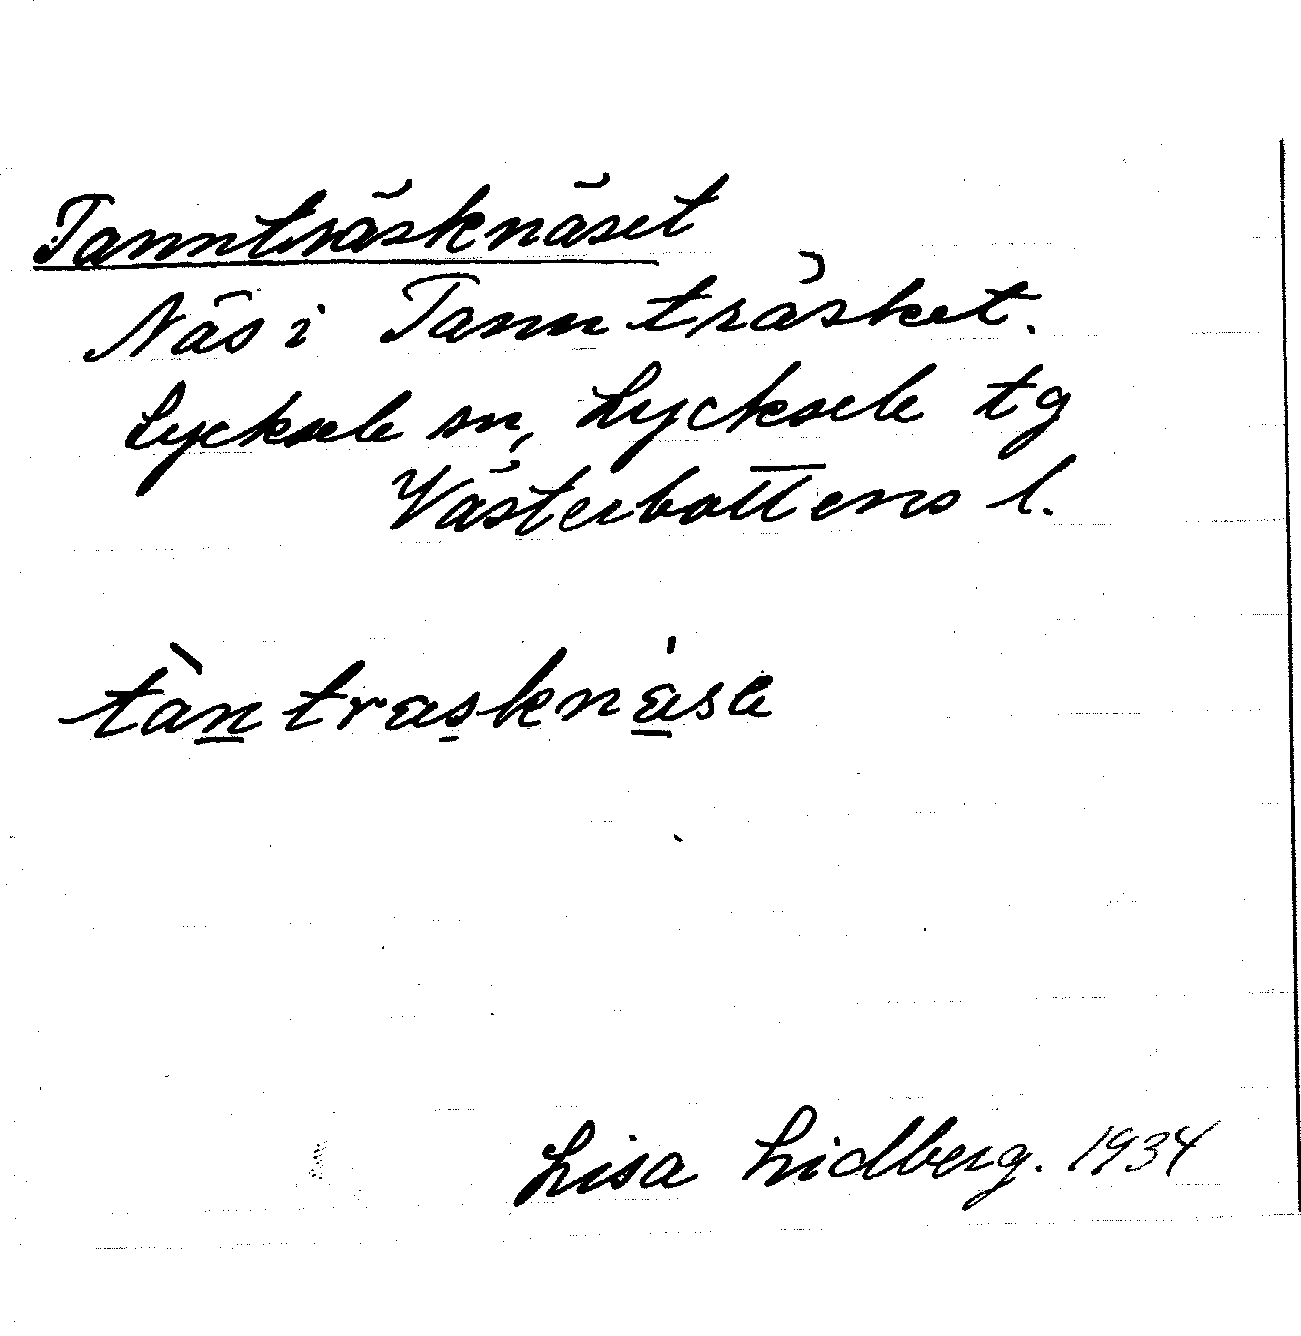 Tannträsknäset
Näs i Tannträsket.
Lycksele sn, Lycksele tg
Västerbottens l.
tàntrasknáse
Lisa Lidberg. 1934